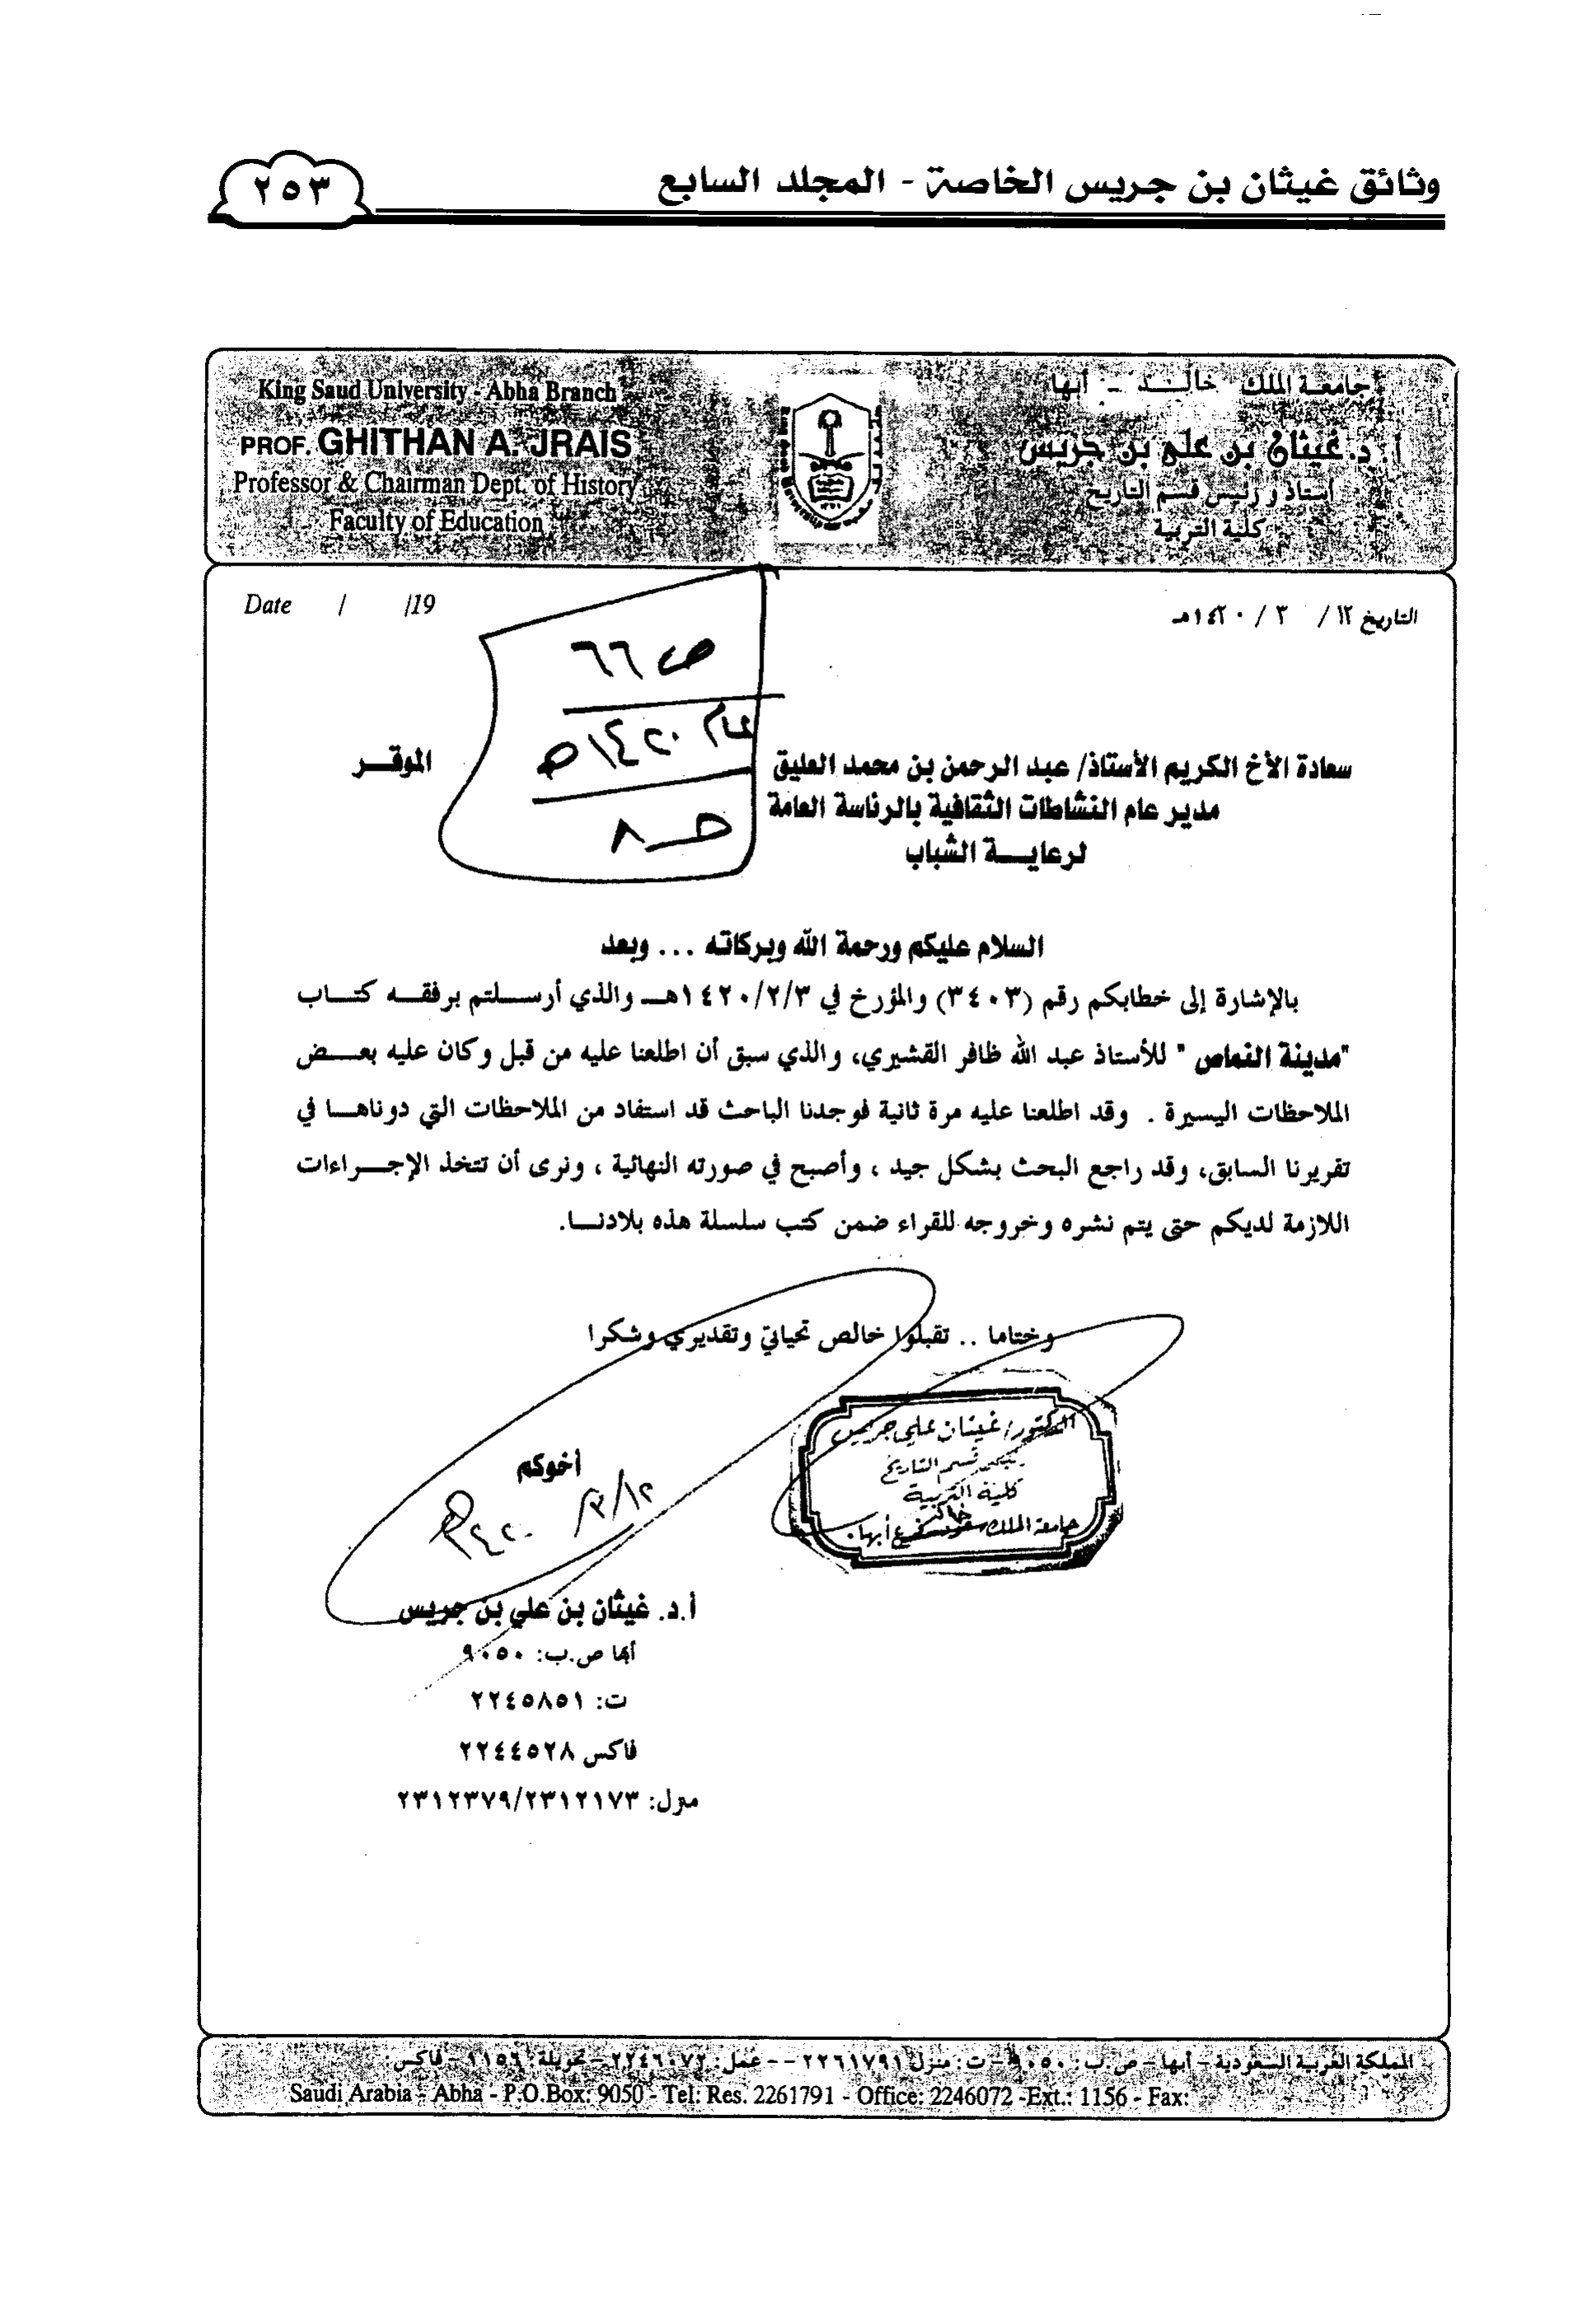 وثائق غيثان بن جريس الخاصة - المجلد السابع
٢٥٣
جامعة الملك خالد - أبها
أ.د. غيثان بن علي بن جريس
أستاذ ورئيس قسم التاريخ
كلية التربية
King Saud University - Abha Branch
PROF. GHITHAN A. JRAIS
Professor & Chairman Dept. of History
Faculty of Education
التاريخ ١٢/ ٣ / ١٤٢٠هـ
Date / /19
ص ٦٦
عام ١٤٢٠هـ
حـ ٨
سعادة الأخ الكريم الأستاذ/ عبد الرحمن بن محمد العليق الموقـر
مدير عام النشاطات الثقافية بالرئاسة العامة
لرعايـة الشباب
السلام عليكم ورحمة الله وبركاته ... وبعد
بالإشارة إلى خطابكم رقم (٣٤٠٣) والمؤرخ في ١٤٢٠/٢/٣هـ والذي أرسلتم برفقه كتاب
"مدينة النماص" للأستاذ عبد الله ظافر القشيري، والذي سبق أن اطلعنا عليه من قبل وكان عليه بعض
الملاحظات اليسيرة . وقد اطلعنا عليه مرة ثانية فوجدنا الباحث قد استفاد من الملاحظات التي دوناها في
تقريرنا السابق، وقد راجع البحث بشكل جيد ، وأصبح في صورته النهائية ، ونرى أن تتخذ الإجراءات
اللازمة لديكم حتى يتم نشره وخروجه للقراء ضمن كتب سلسلة هذه بلادنا.
وختاما .. تقبلوا خالص تحياتي وتقديري وشكرا
الدكتور/ غيثان علي جريس
رئيس قسم التاريخ
كلية التربية
خالد
جامعة الملك سعود فرع أبها
أخوكم
١٢/٣/ ١٤٢٠هـ
أ.د. غيثان بن علي بن جريس
أبها ص.ب: ٩٠٥٠
ت: ٢٢٤٥٨٥١
فاكس ٢٢٤٤٥٢٨
منزل: ٢٣١٢٣٧٩/٢٣١٢١٧٣
المملكة العربية السعودية - أبها - ص.ب: ٩٠٥٠ - ت: منزل ٢٢٦١٧٩١ -- عمل: ٢٢٤٦٠٧٢ - تحويلة: ١١٥٦ - فاكس:
Saudi Arabia - Abha - P.O.Box: 9050 - Tel: Res. 2261791 - Office: 2246072 -Ext.: 1156 - Fax: